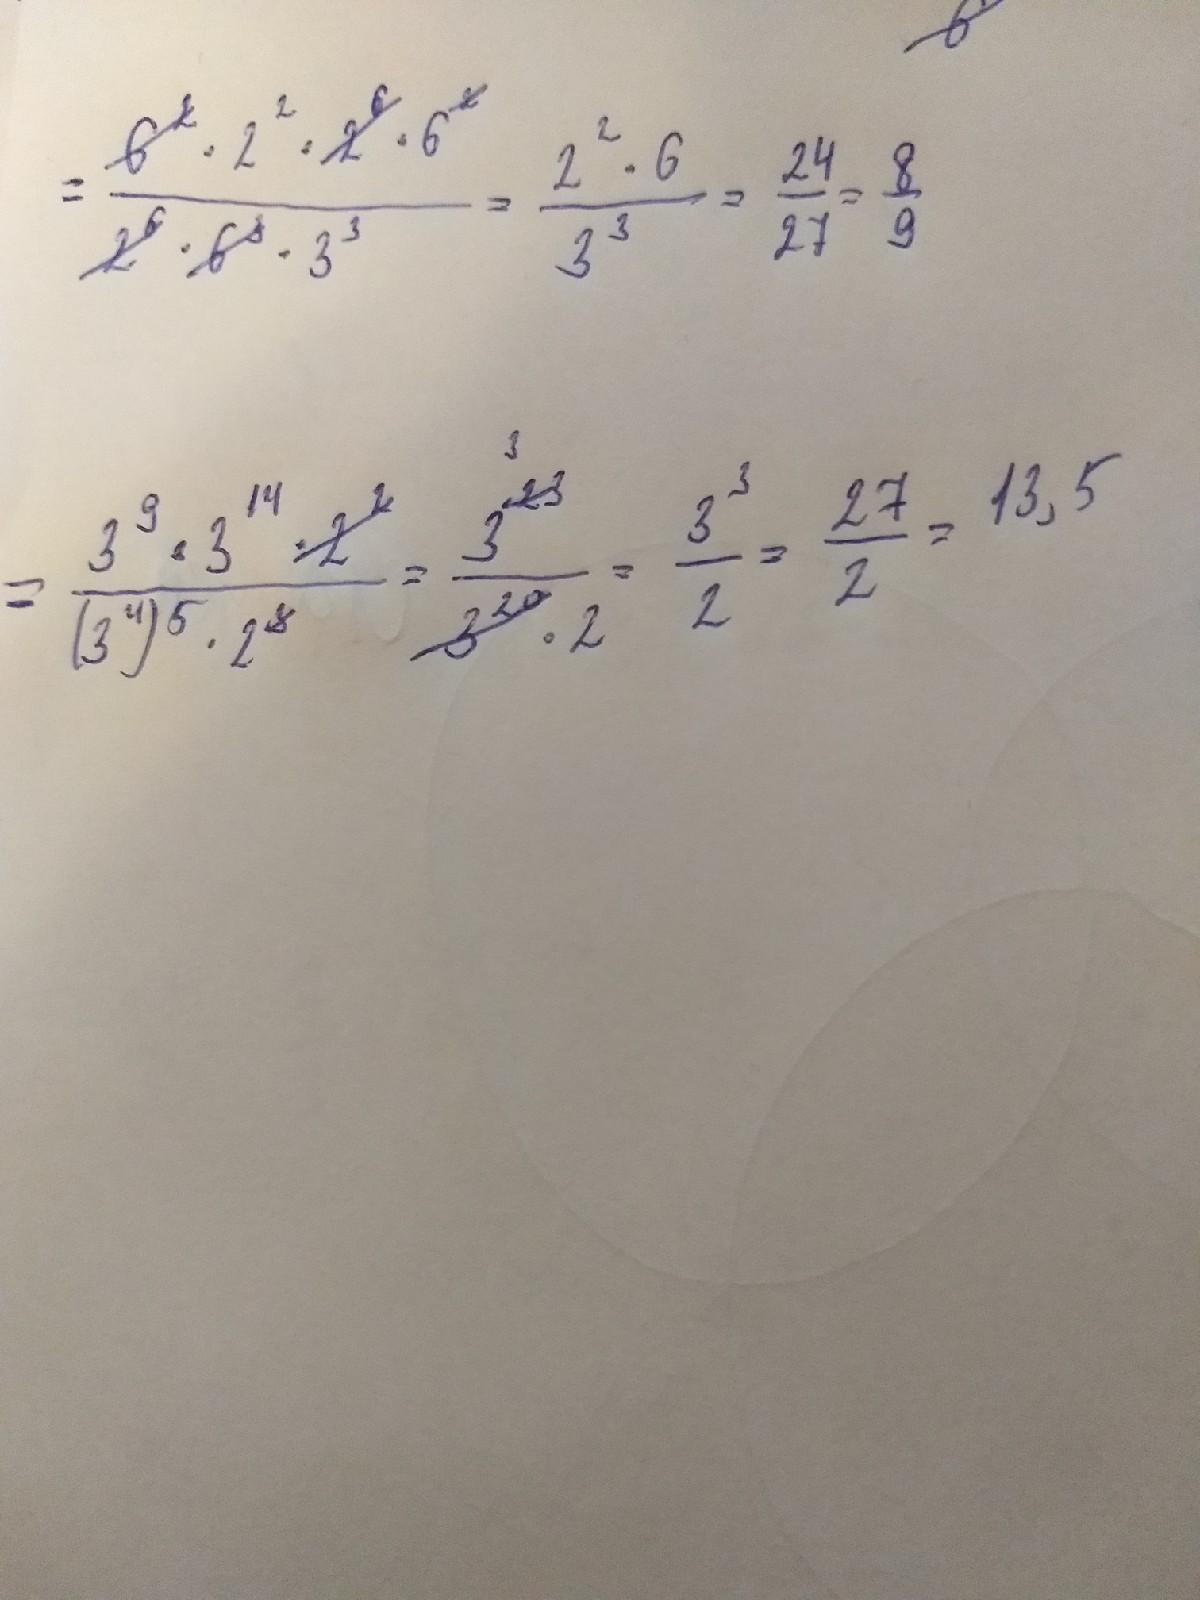 6
= (6² · 2² · 2⁶ · 6²) / (2⁶ · 6³ · 3³) = (2² · 6) / 3³ = 24/27 = 8/9
= (3⁹ · 3¹⁴ · 2²) / ((3⁴)⁵ · 2³) = 3²³ ³ / (3²⁰ · 2) = 3³/2 = 27/2 = 13,5